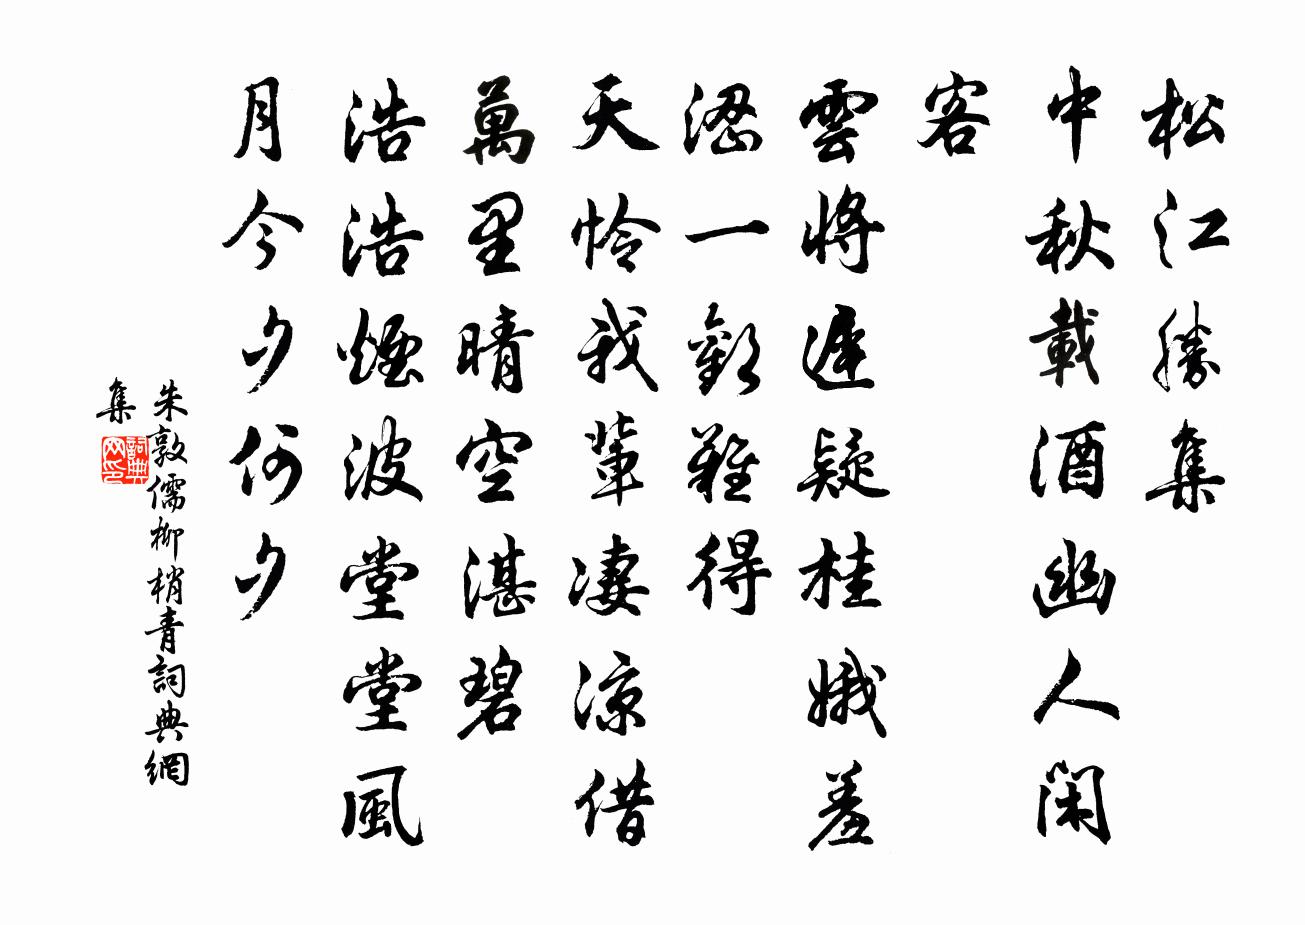 松江勝集
中秋載酒幽人闲
客
雲將遲疑桂娥羞
澀一歡難得
天憐我輩淒涼借
萬里晴空湛碧
浩浩煙波堂堂風
月今夕何夕
朱敦儒柳梢青詞典網
集
詞典網印